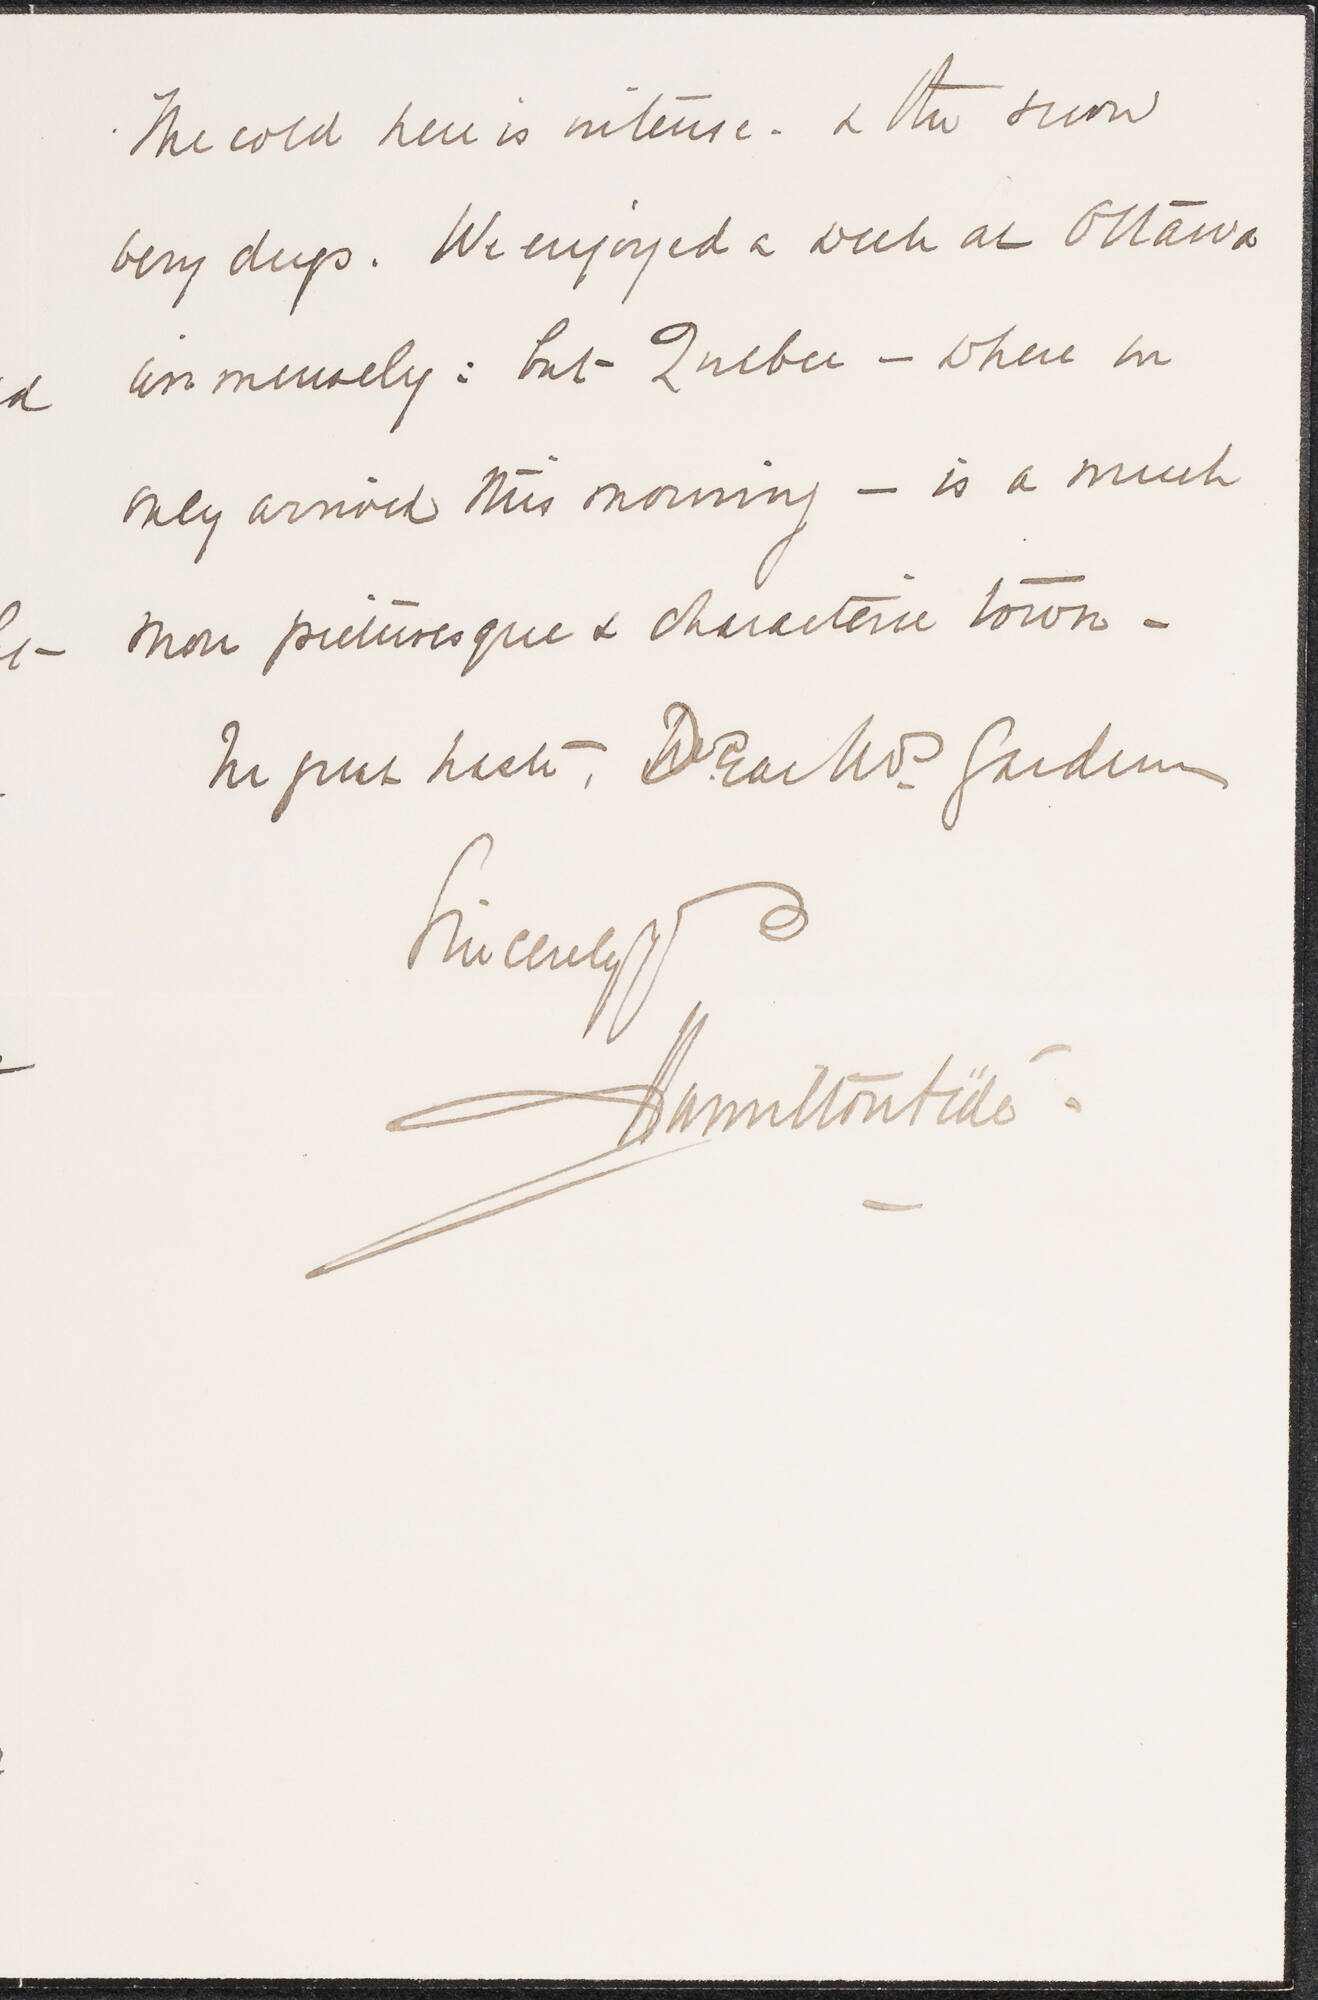 The cold here is intense. & the snow
very deep. We enjoyed a week at Ottawa
immensely: but Quebec – where we
only arrived this morning – is a much
more picturesque & characteristic town –
In great haste, Dear Mrs. Gardner
Sincerely yrs
Hamilton Aïdé.